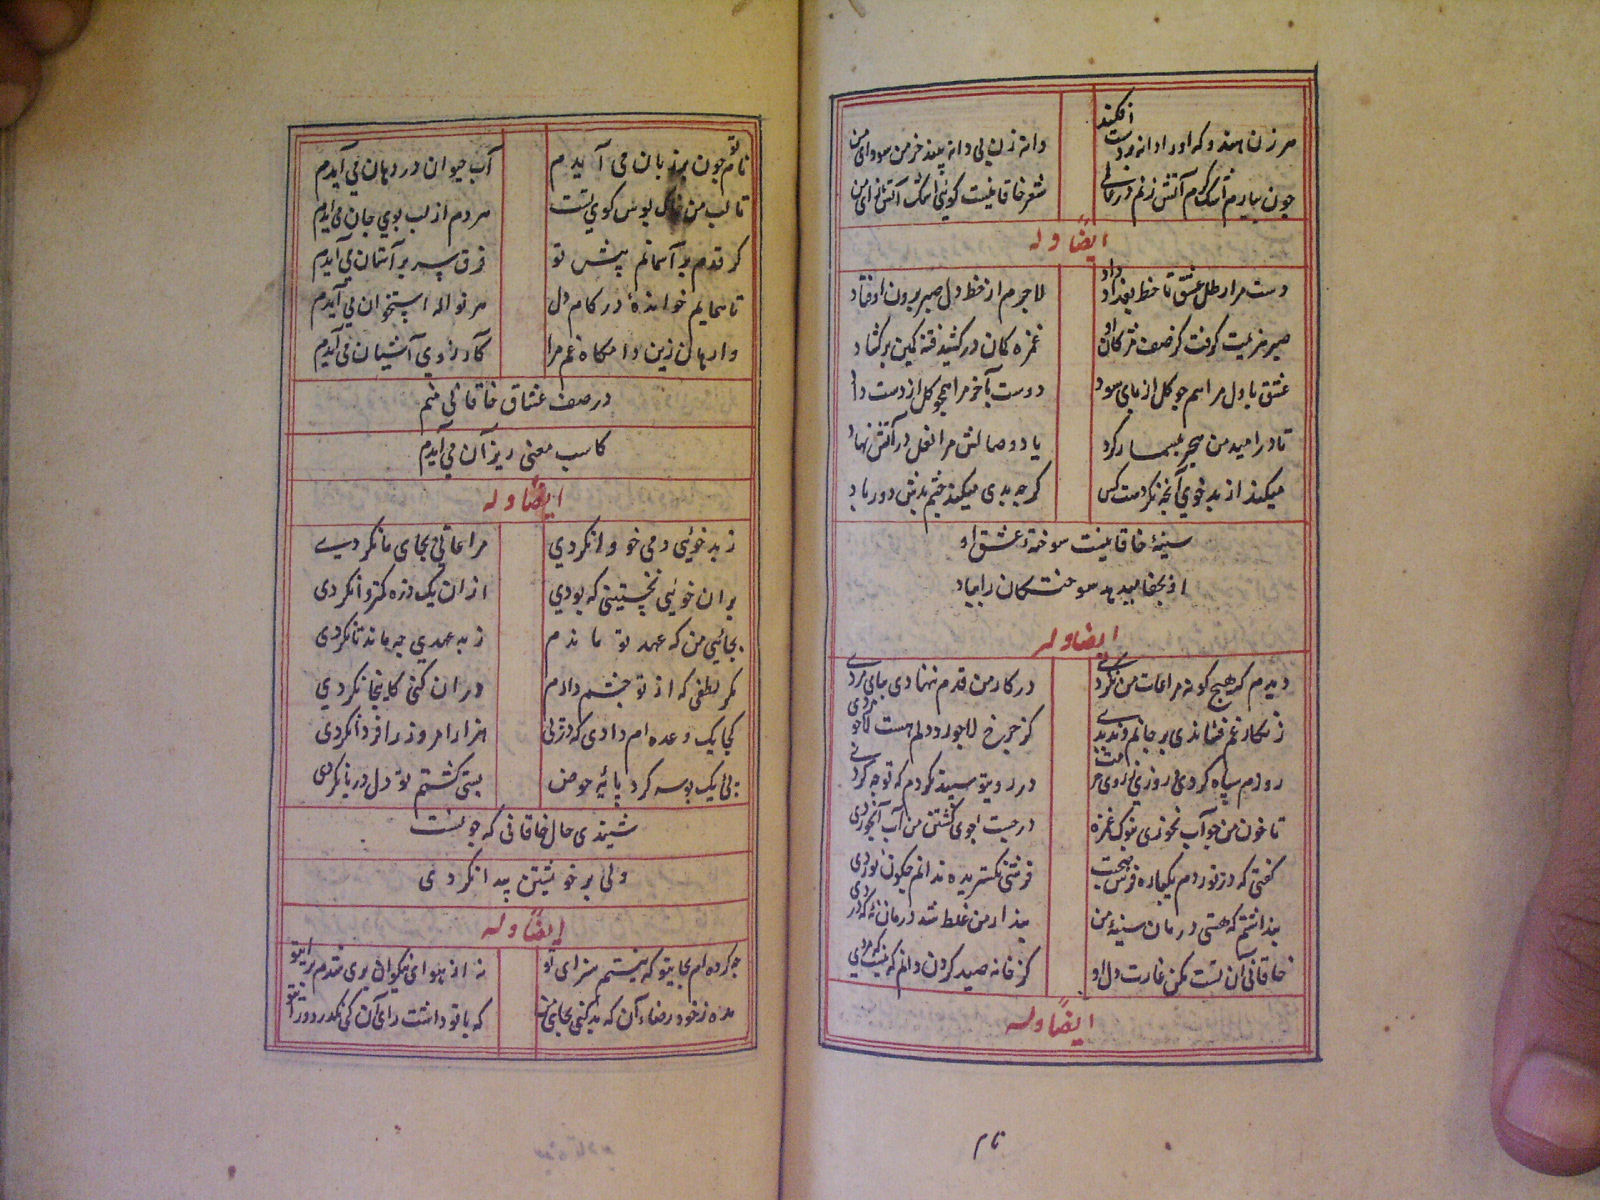 هر زن هندو که اورا دانه بر دست افکند دانه زن بی دانه بیند خرمن سودای من
چون ببارم اشک گرم آتش زنم در عالمی شعر خاقانیست گویی اشک آتش زای من
ایضاً وله
دست مرا رطل عشق تا خط بغداد داد لاجرم از خط دل صبر برون اوفتاد
صبر هزیمت گرفت کز صف مژکان او غمزه کمان درکشید فتنه کمین برکشاد
عشق باول مرا همچو کل از پای سود دوست بآخر مرا همچو کل از دست داد
تا در امید من هجر بمسمار کرد یاد وصالش مرا نعل در آتش نهاد
میکند از بدخوی آنچه نکردست کس کرچه بدی میکند چشم بدش دور باد
سینهٔ خاقانیست سوختهٔ عشق او
او بجفا میدهد سوختکان را بباد
ایضا وله
دیدم که هیچ کونه مراعات من نکردی در کار من قدم ننهادی بپای مردی
زنکار غم فشاندی بر جانم و ندیدی کز چرخ لاجورد دلم هست لاجوردی
روزم سیاه کردی روزی ز روی حرمت در رویتو سپید نکردم که تو چه کردی
تا خون من چو آب نخوردی بنوک غمزه در جست اجوی کشتن من آب آنخوردی
کفتی که در نوردم یکباره فرش صحبت فرشی نکستریده ندانم چکونه نوردی
پنداشتم که هستی درمان سینهٔ من پندار من غلط شد درمان نهٔ که دردی
خاقانی آن تست مکن غارت دل او کز خانه صید کردن دانم که نیست مردی
ایضاً وله
نام
نام تو چون بر زبان می آیدم آب حیوان در دهان می آیدم
تا لب من خاک بوس کوی تست هر دم از لب بوی جان می آیدم
کر قدم بر آسمانم پیش تو فرق سر بر آستان می آیدم
تا همایم خواندهٔ در کام دل هر نواله استخوان می آیدم
وارهان زین دامکاه غم مرا کآرزوی آشیان می آیدم
در صف عشاق خاقانی منم
کاسب معنی زیر ران می آیدم
ایضاً وله
ز بدخوئی دمی خو وا نکردی مراعاتی بجای ما نکردی
بر آن خوئی نخستینی که بودی از آن یک ذره کمتر وا نکردی
بجائی من که عهد تو ماندم ز بد عهدی چه ماند تا نکردی
کر لطفی که از تو چشم دارم در آن کنی کاینجا نکردی
کجا یک وعده ام دادی که در پی هزار امروز را فردا نکردی
بپی یک بوسه کرد پایهٔ حوض بسی کشتم تو دل دریا نکردی
شنیدی حال خاقانی که چونست
ولی بر خویشتن پیدا نکردی
ایضاً وله
چه کرده ام بجایتو که نیستم سزای تو نه از هوای نیکوان بری شدم برای تو
مده ز خود رضای آن که بد کنی بجای من که با تو داشت رای آن که نکذرد ز رای تو